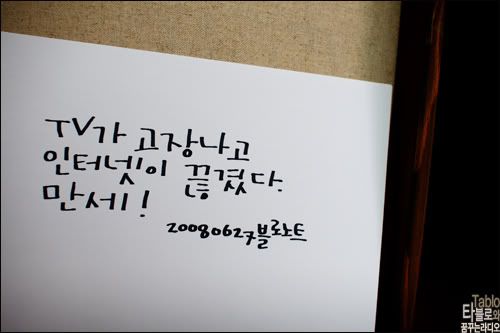 TV가 고장나고
인터넷이 끊겼다.
만세!
20080627블로노트
Tablo
타블로와
꿈꾸는라디오